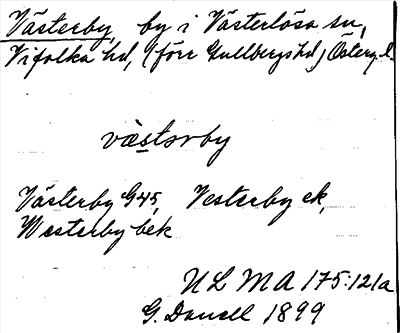 Västerby, by i Västerlösa sn,
Vifolka hd, (förr Gullbergs hd) Östergtl.
västərby
Västerby G45, Vesterby ek,
Westerby bek
ULMA 175:121a
G. Danell 1899